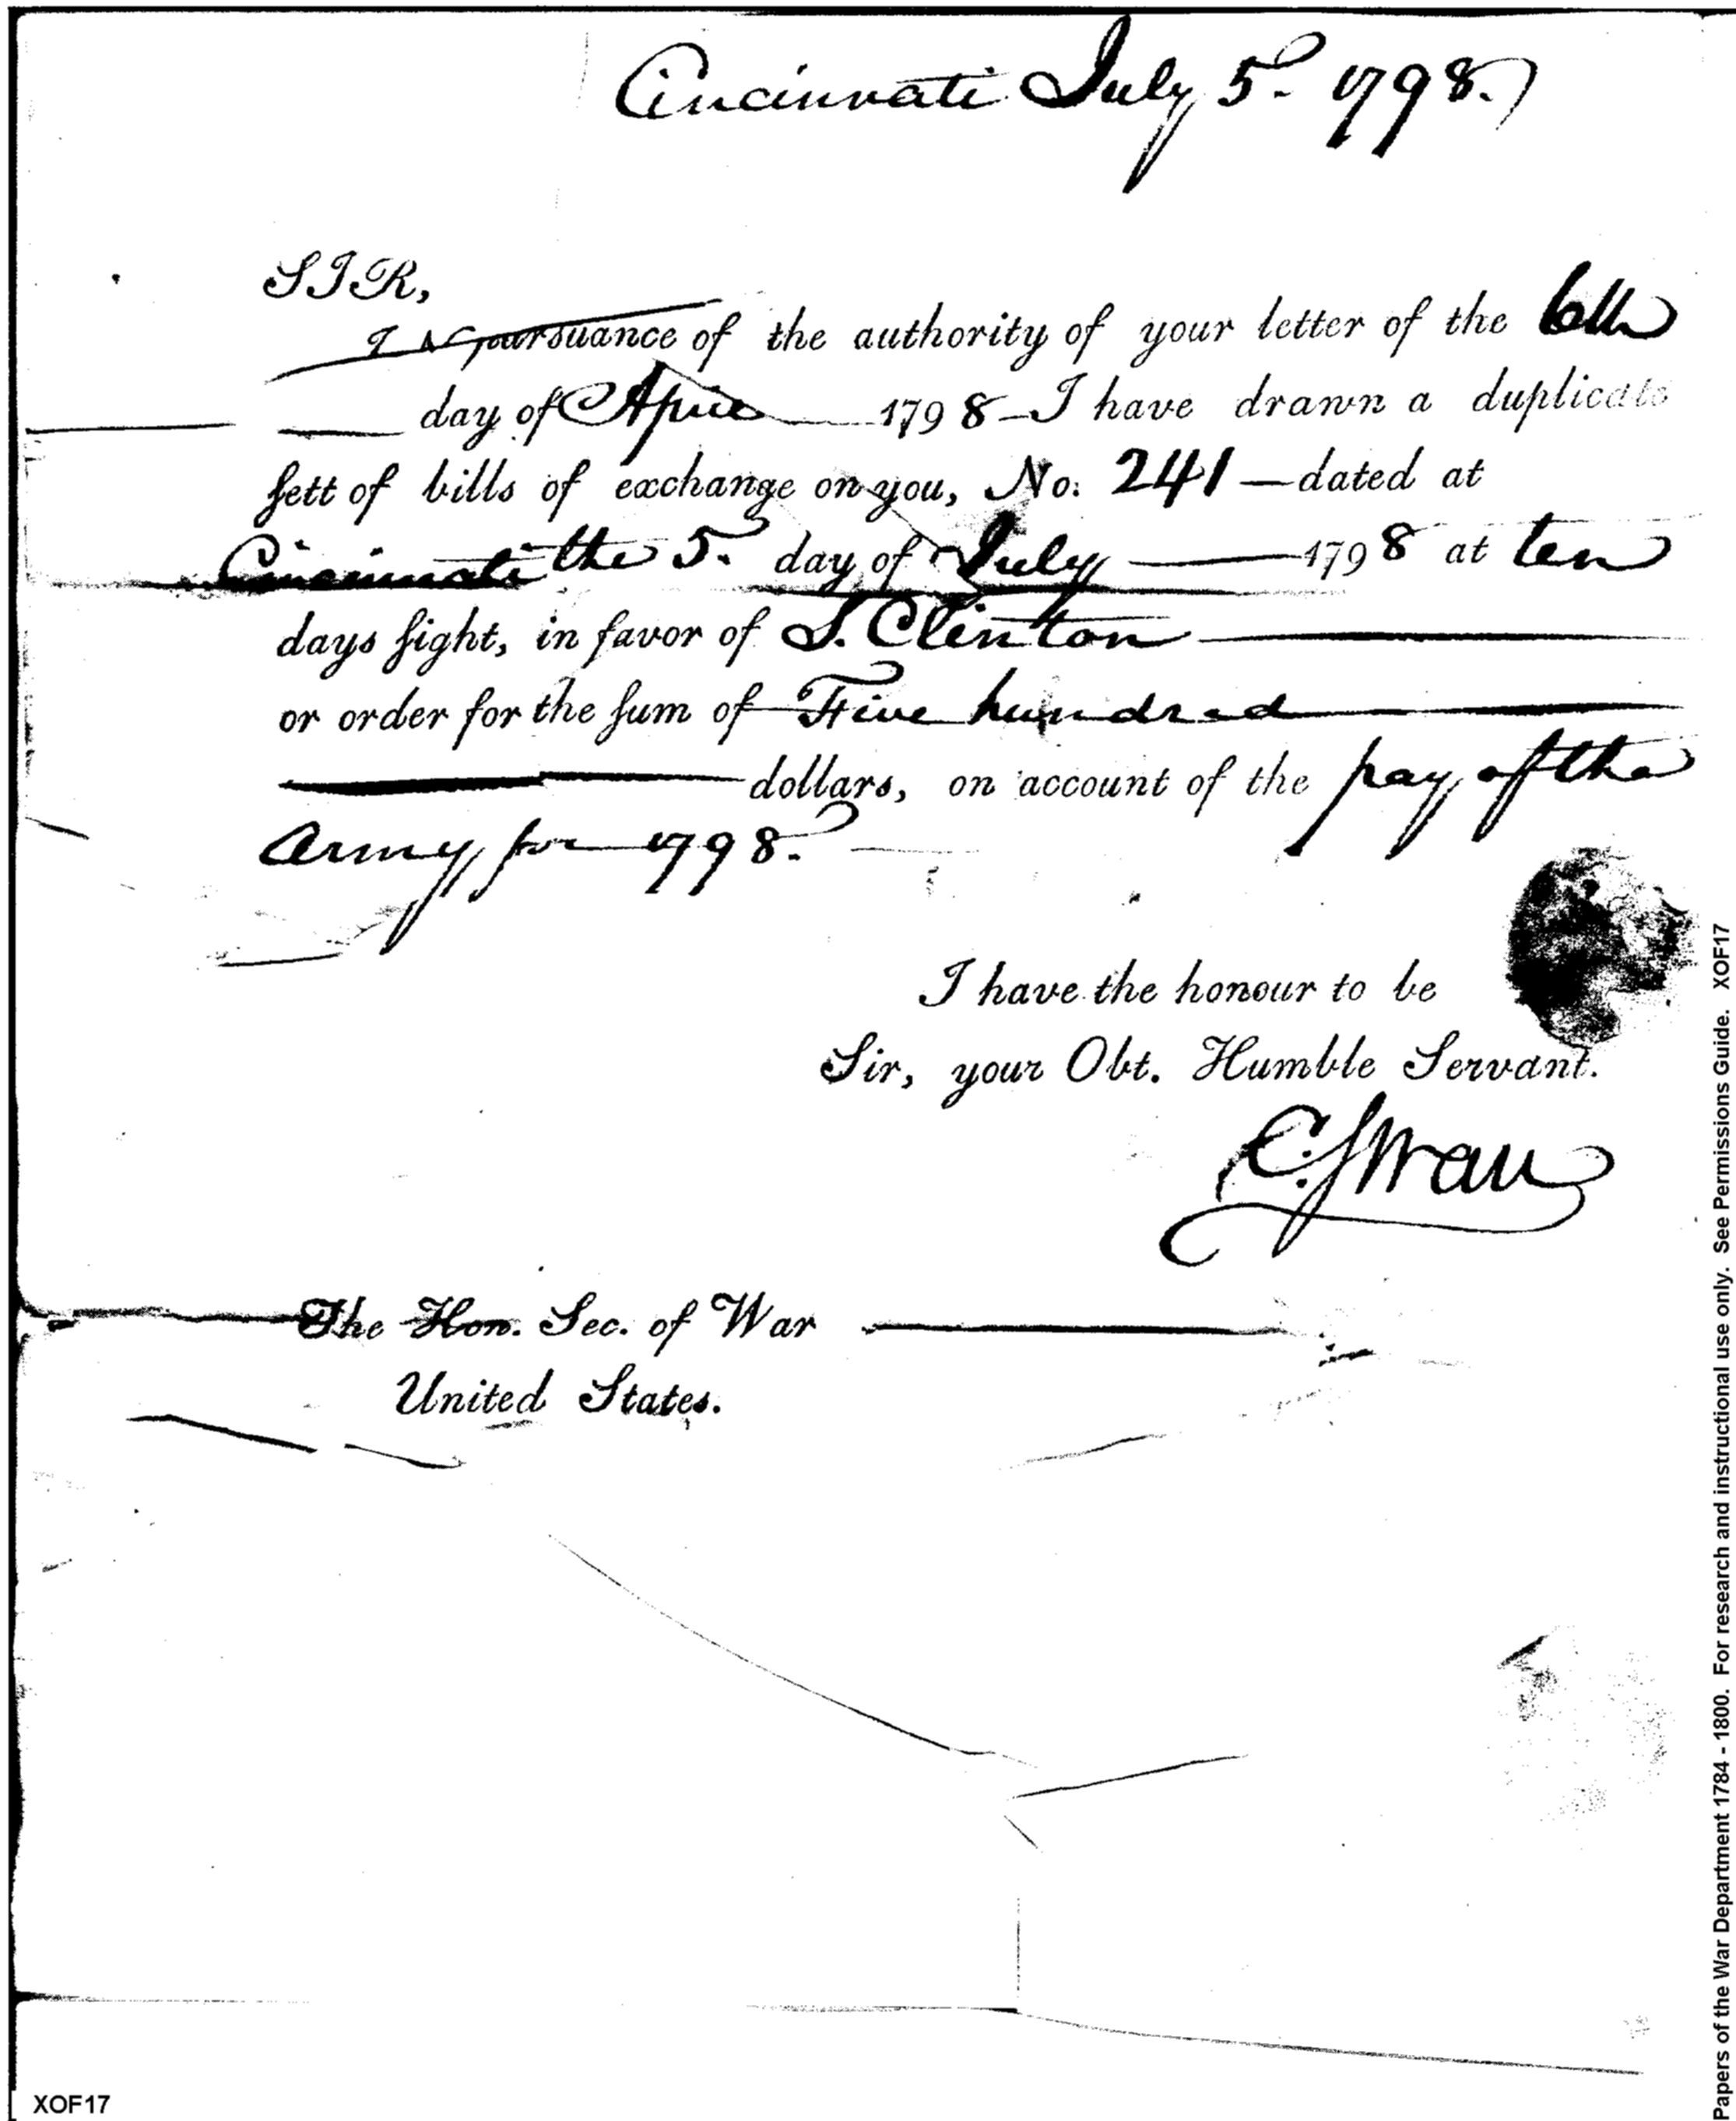 Cincinnati July 5. 1798.
SIR,
IN pursuance of the authority of your letter of the 6th
day of April 1798 - I have drawn a duplicate
sett of bills of exchange on you, No: 241 — dated at
Cincinnati the 5. day of July — 1798 at ten
days sight, in favor of S. Clinton
or order for the sum of Five hundred
dollars, on account of the pay of the
Army for 1798.
I have the honour to be
Sir, your Obt. Humble Servant.
C. Swan
The Hon. Sec. of War
United States.
XOF17
Papers of the War Department 1784 - 1800. For research and instructional use only. See Permissions Guide. XOF17